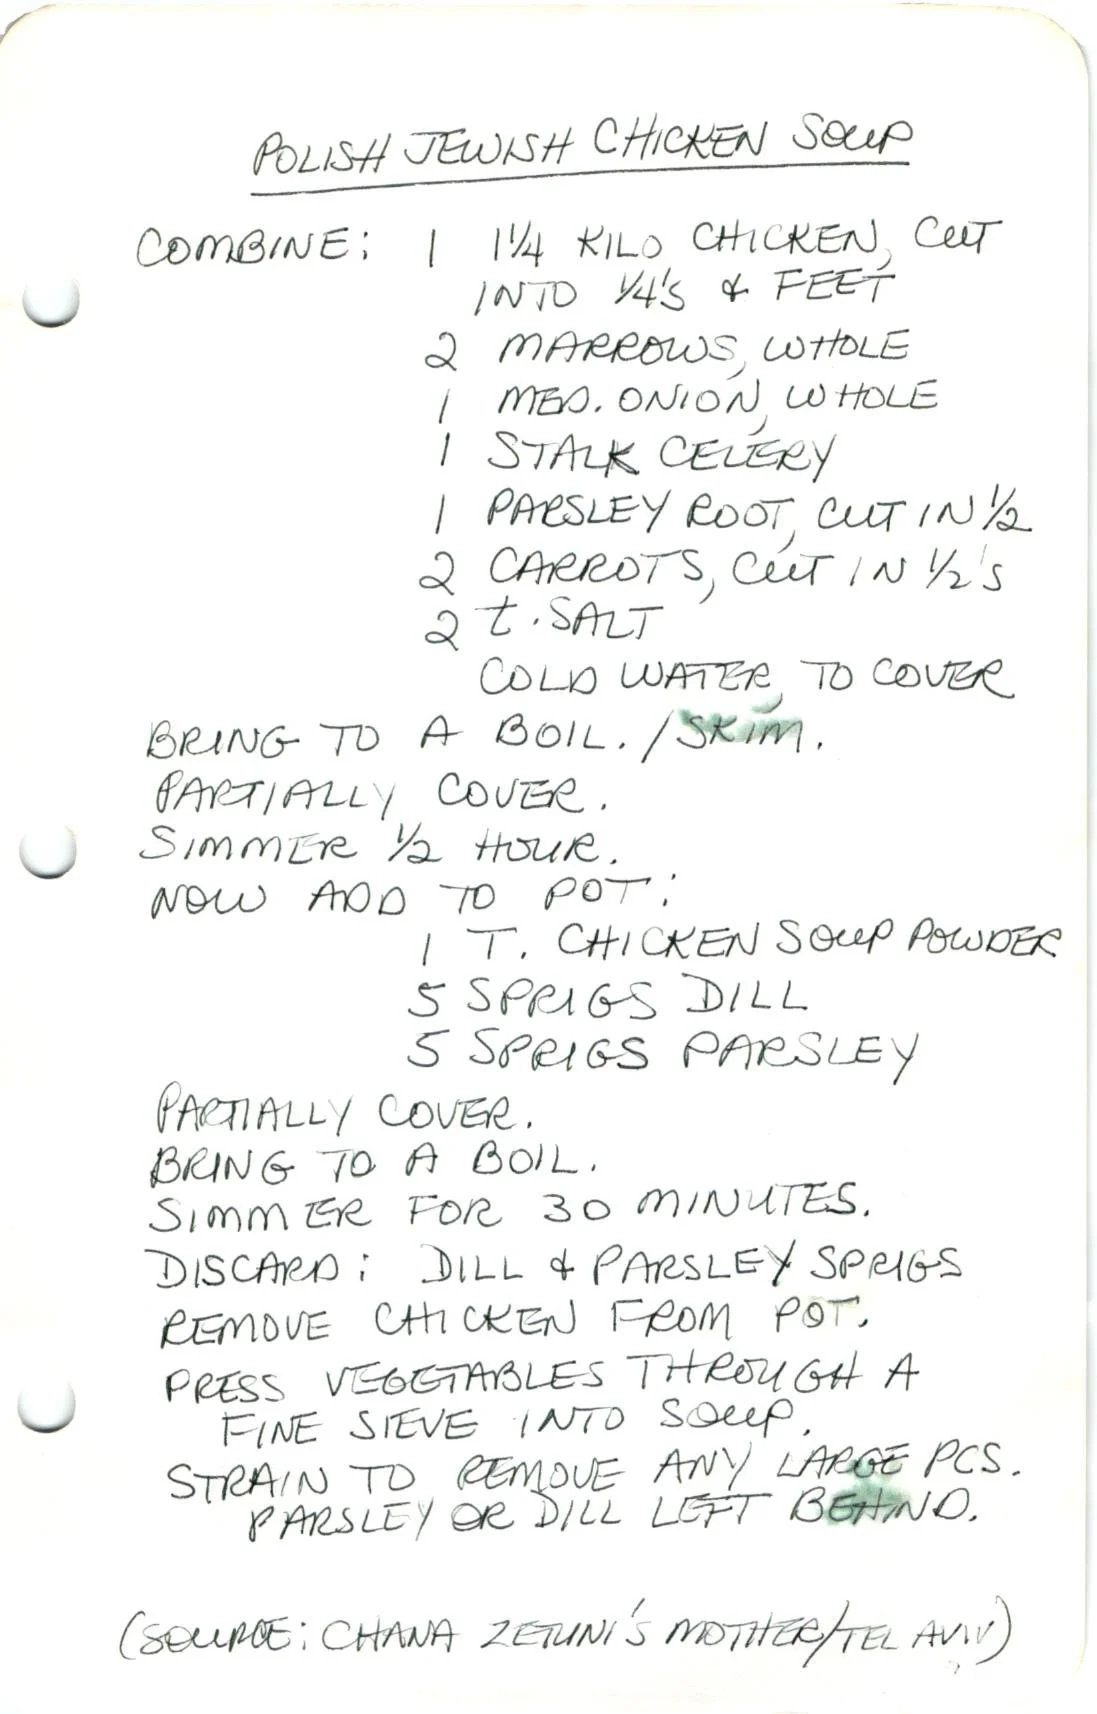 POLISH JEWISH CHICKEN SOUP
COMBINE: 1 1¼ KILO CHICKEN, CUT
INTO ¼'S & FEET
2 MARROWS, WHOLE
1 MED. ONION, WHOLE
1 STALK CELERY
1 PARSLEY ROOT, CUT IN ½
2 CARROTS, CUT IN ½'S
2 t. SALT
COLD WATER, TO COVER
BRING TO A BOIL. / SKIM.
PARTIALLY COVER.
SIMMER ½ HOUR.
NOW ADD TO POT:
1 T. CHICKEN SOUP POWDER
5 SPRIGS DILL
5 SPRIGS PARSLEY
PARTIALLY COVER.
BRING TO A BOIL.
SIMMER FOR 30 MINUTES.
DISCARD: DILL & PARSLEY SPRIGS
REMOVE CHICKEN FROM POT.
PRESS VEGETABLES THROUGH A
FINE SIEVE INTO SOUP.
STRAIN TO REMOVE ANY LARGE PCS.
PARSLEY OR DILL LEFT BEHIND.
(SOURCE: CHANA ZETUNI'S MOTHER/TEL AVIV)